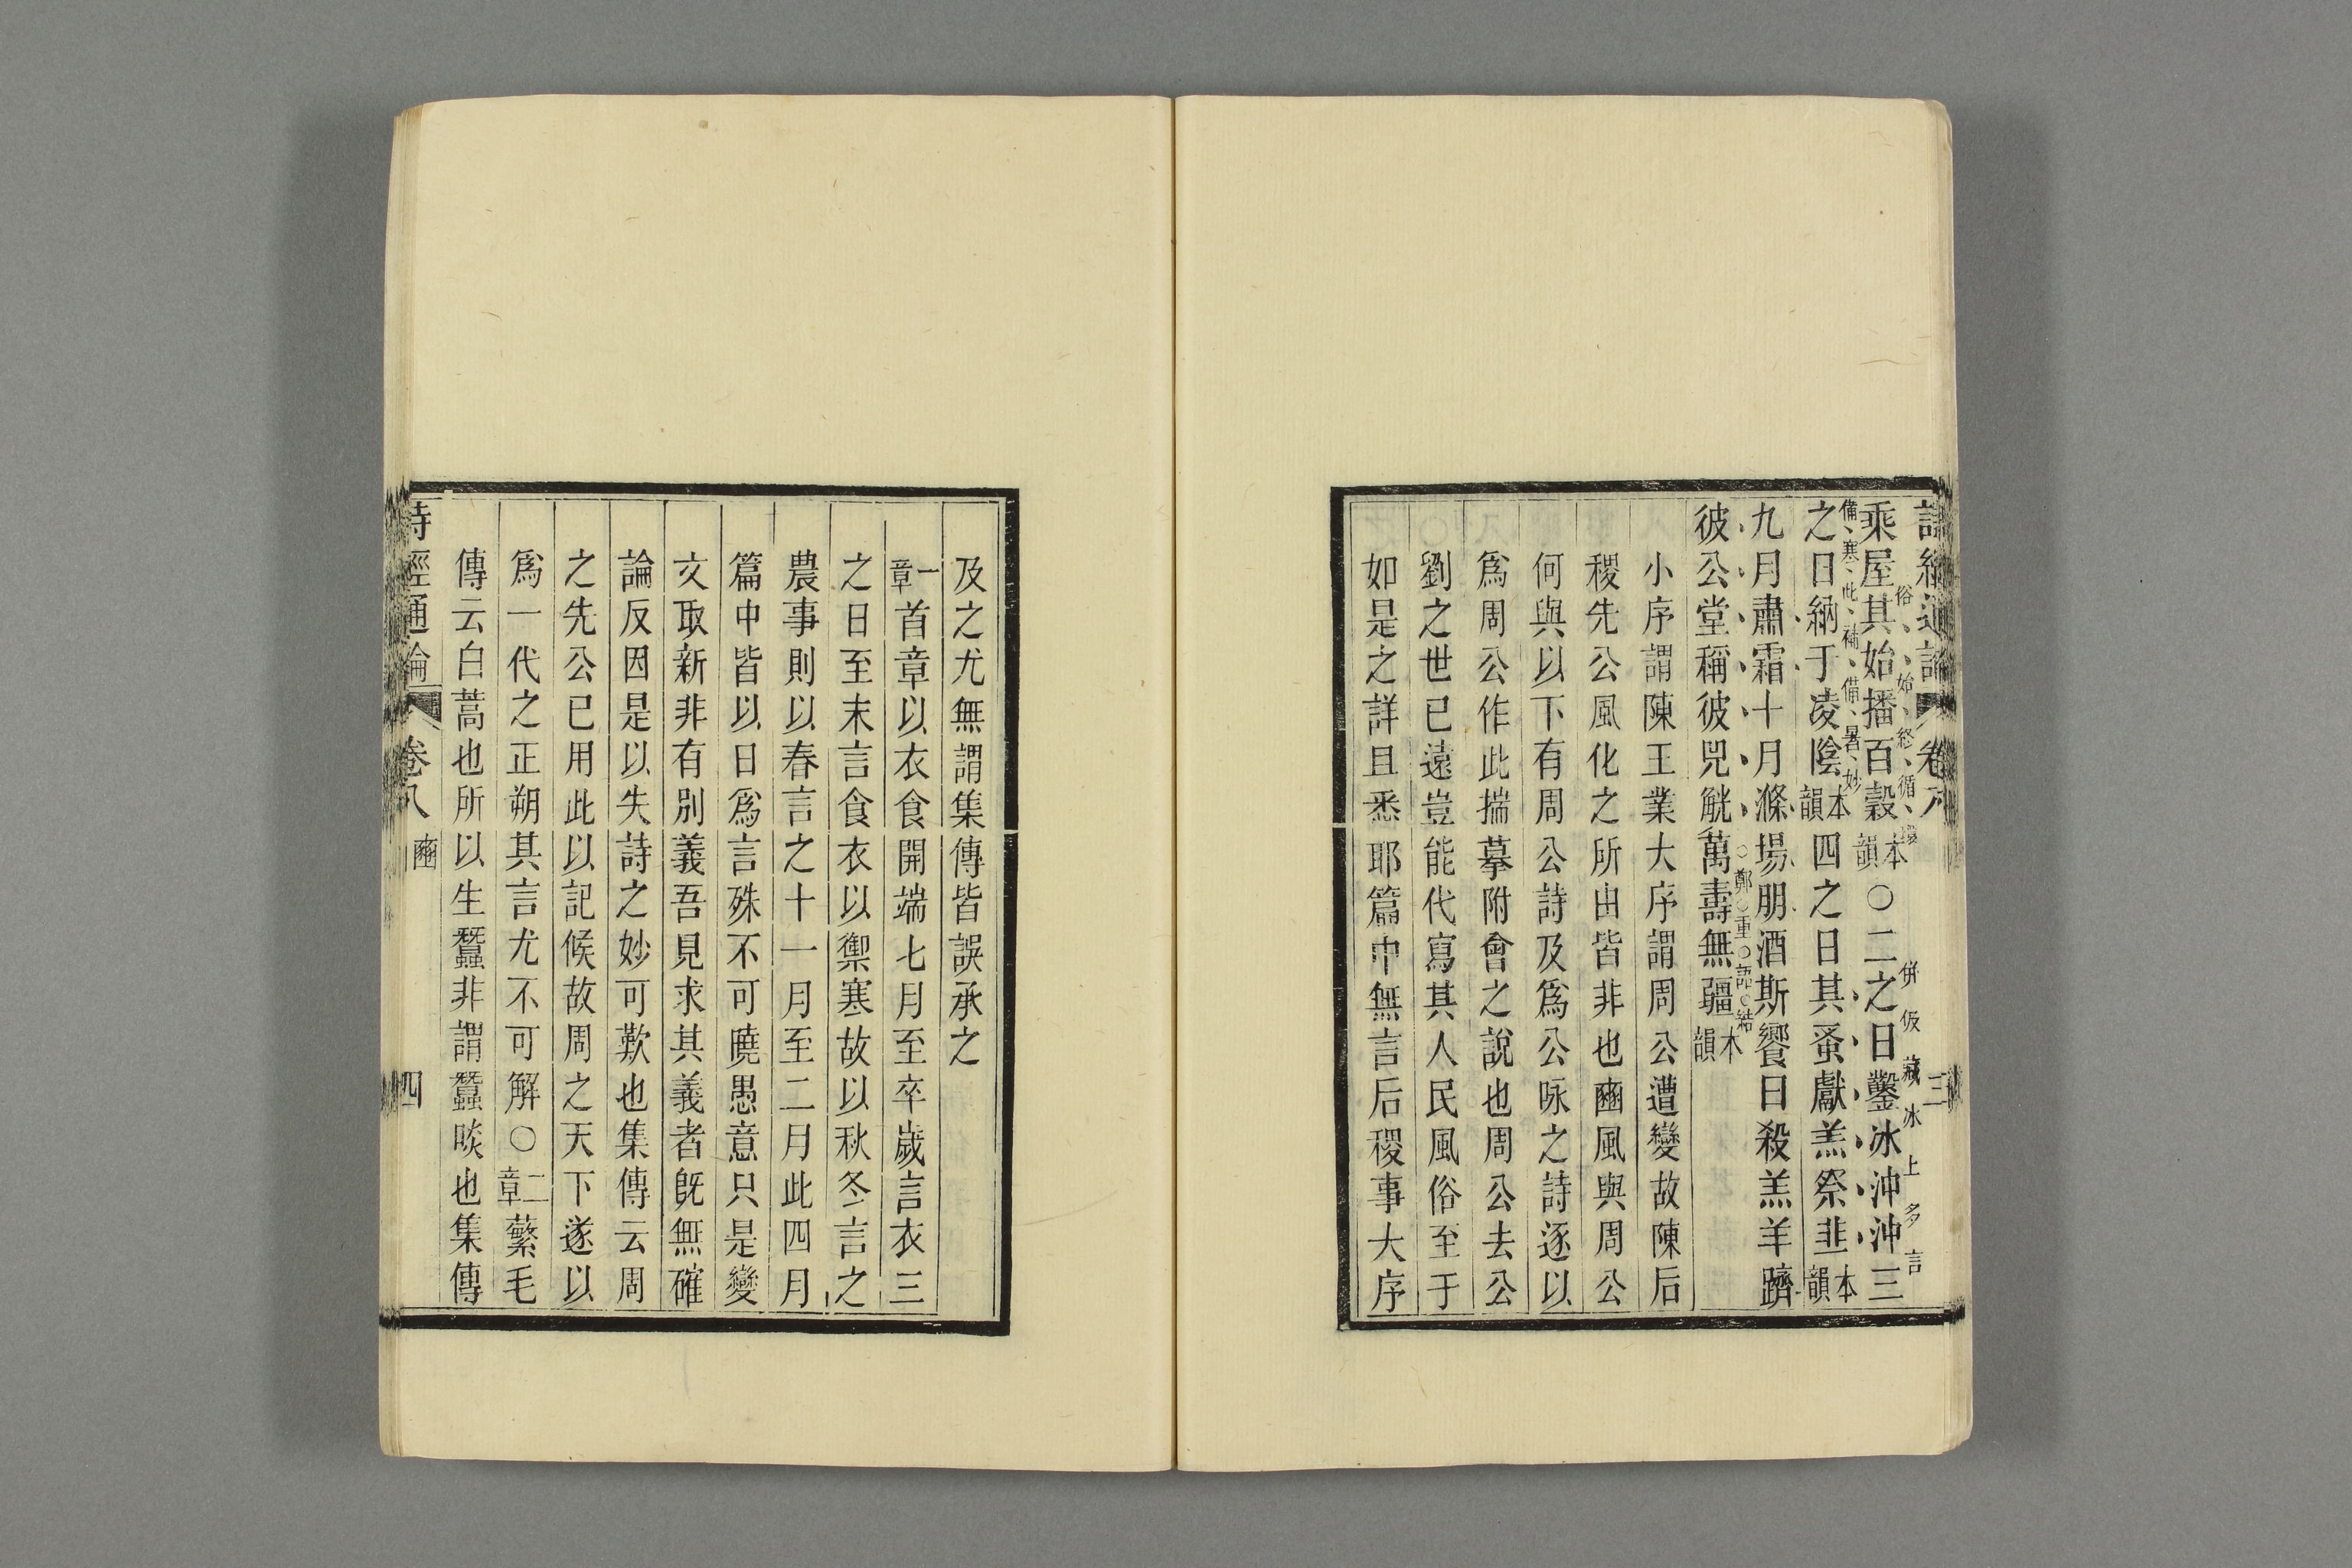 詩經通論 卷八 三
俗始終循環 併仮藏冰上多言
乘屋其始播百穀本韻○二之日鑿冰沖沖三
備寒此補備暑妙
之日納于凌陰本韻四之日其蚤獻羔祭韭本韻
九月肅霜十月滌場朋酒斯饗日殺羔羊躋
鄭重語結
彼公堂稱彼兕觥萬壽無疆本韻
小序謂陳王業大序謂周公遭變故陳后
稷先公風化之所由皆非也豳風與周公
何與以下有周公詩及爲公咏之詩逐以
爲周公作此揣摹附會之說也周公去公
劉之世已遠豈能代寫其人民風俗至于
如是之詳且悉耶篇中無言后稷事大序
及之尤無謂集傳皆誤承之
一章首章以衣食開端七月至卒歲言衣三
之日至末言食衣以禦寒故以秋冬言之
農事則以春言之十一月至二月此四月
篇中皆以日爲言殊不可曉愚意只是變
文取新非有別義吾見求其義者旣無確
論反因是以失詩之妙可歎也集傳云周
之先公已用此以記候故周之天下遂以
爲一代之正朔其言尤不可解○二章蘩毛
傳云白蒿也所以生蠶非謂蠶啖也集傳
詩經通論 卷八 豳 四